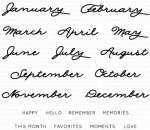 January February
March April May
June July August
September October
November December
HAPPY HELLO REMEMBER MEMORIES
THIS MONTH FAVORITES MOMENTS LOVE